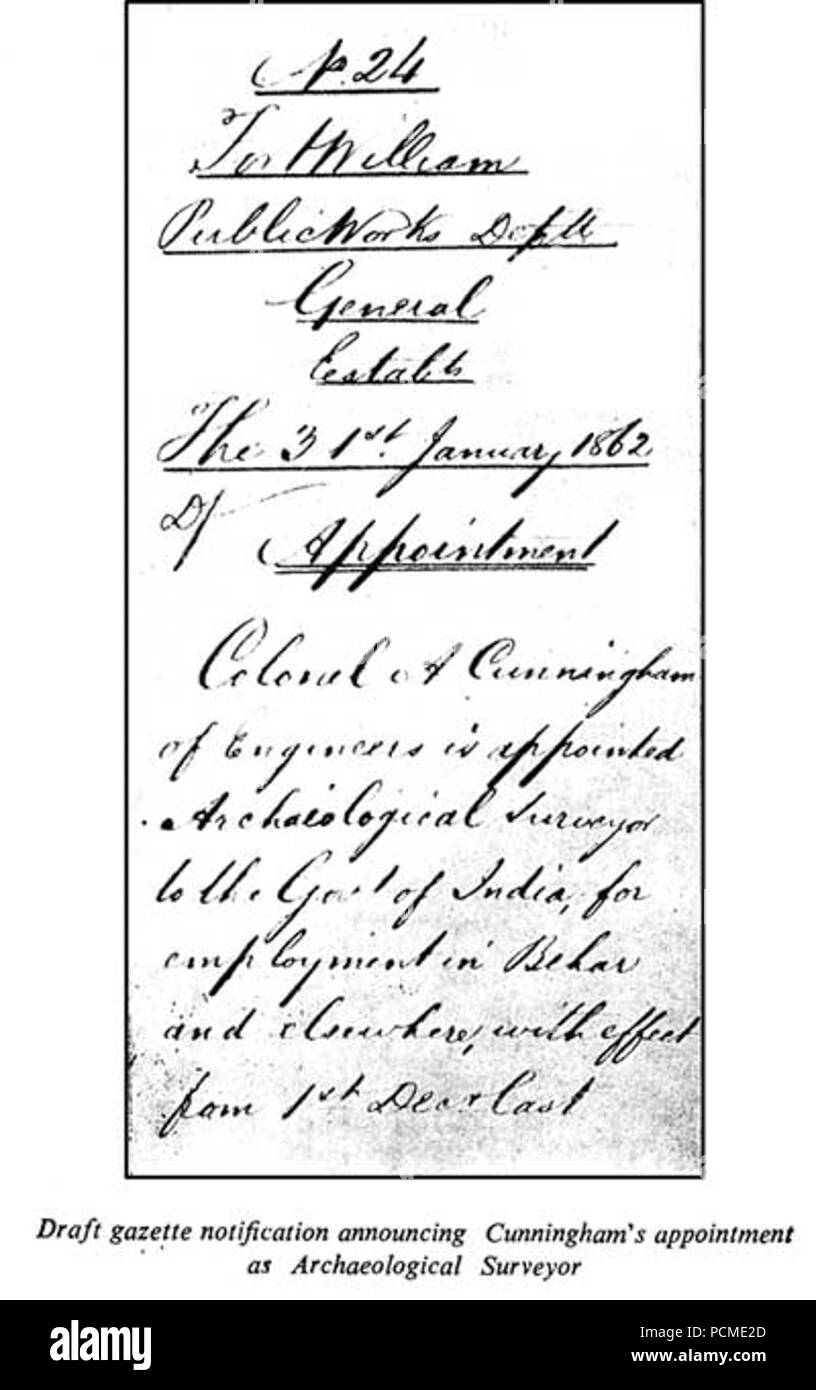 No. 24
Fort William
Public Works Deptt.
General
Establt.
The 31st. January, 1862
D/
Appointment
Colonel A Cunningham
of Engineers is appointed
Archaeological Surveyor
to the Govt of India, for
employment in Behar
and elsewhere, with effect
from 1st Decr last
Draft gazette notification announcing Cunningham's appointment
as Archaeological Surveyor
alamy
Image ID: PCME2D
www.alamy.com